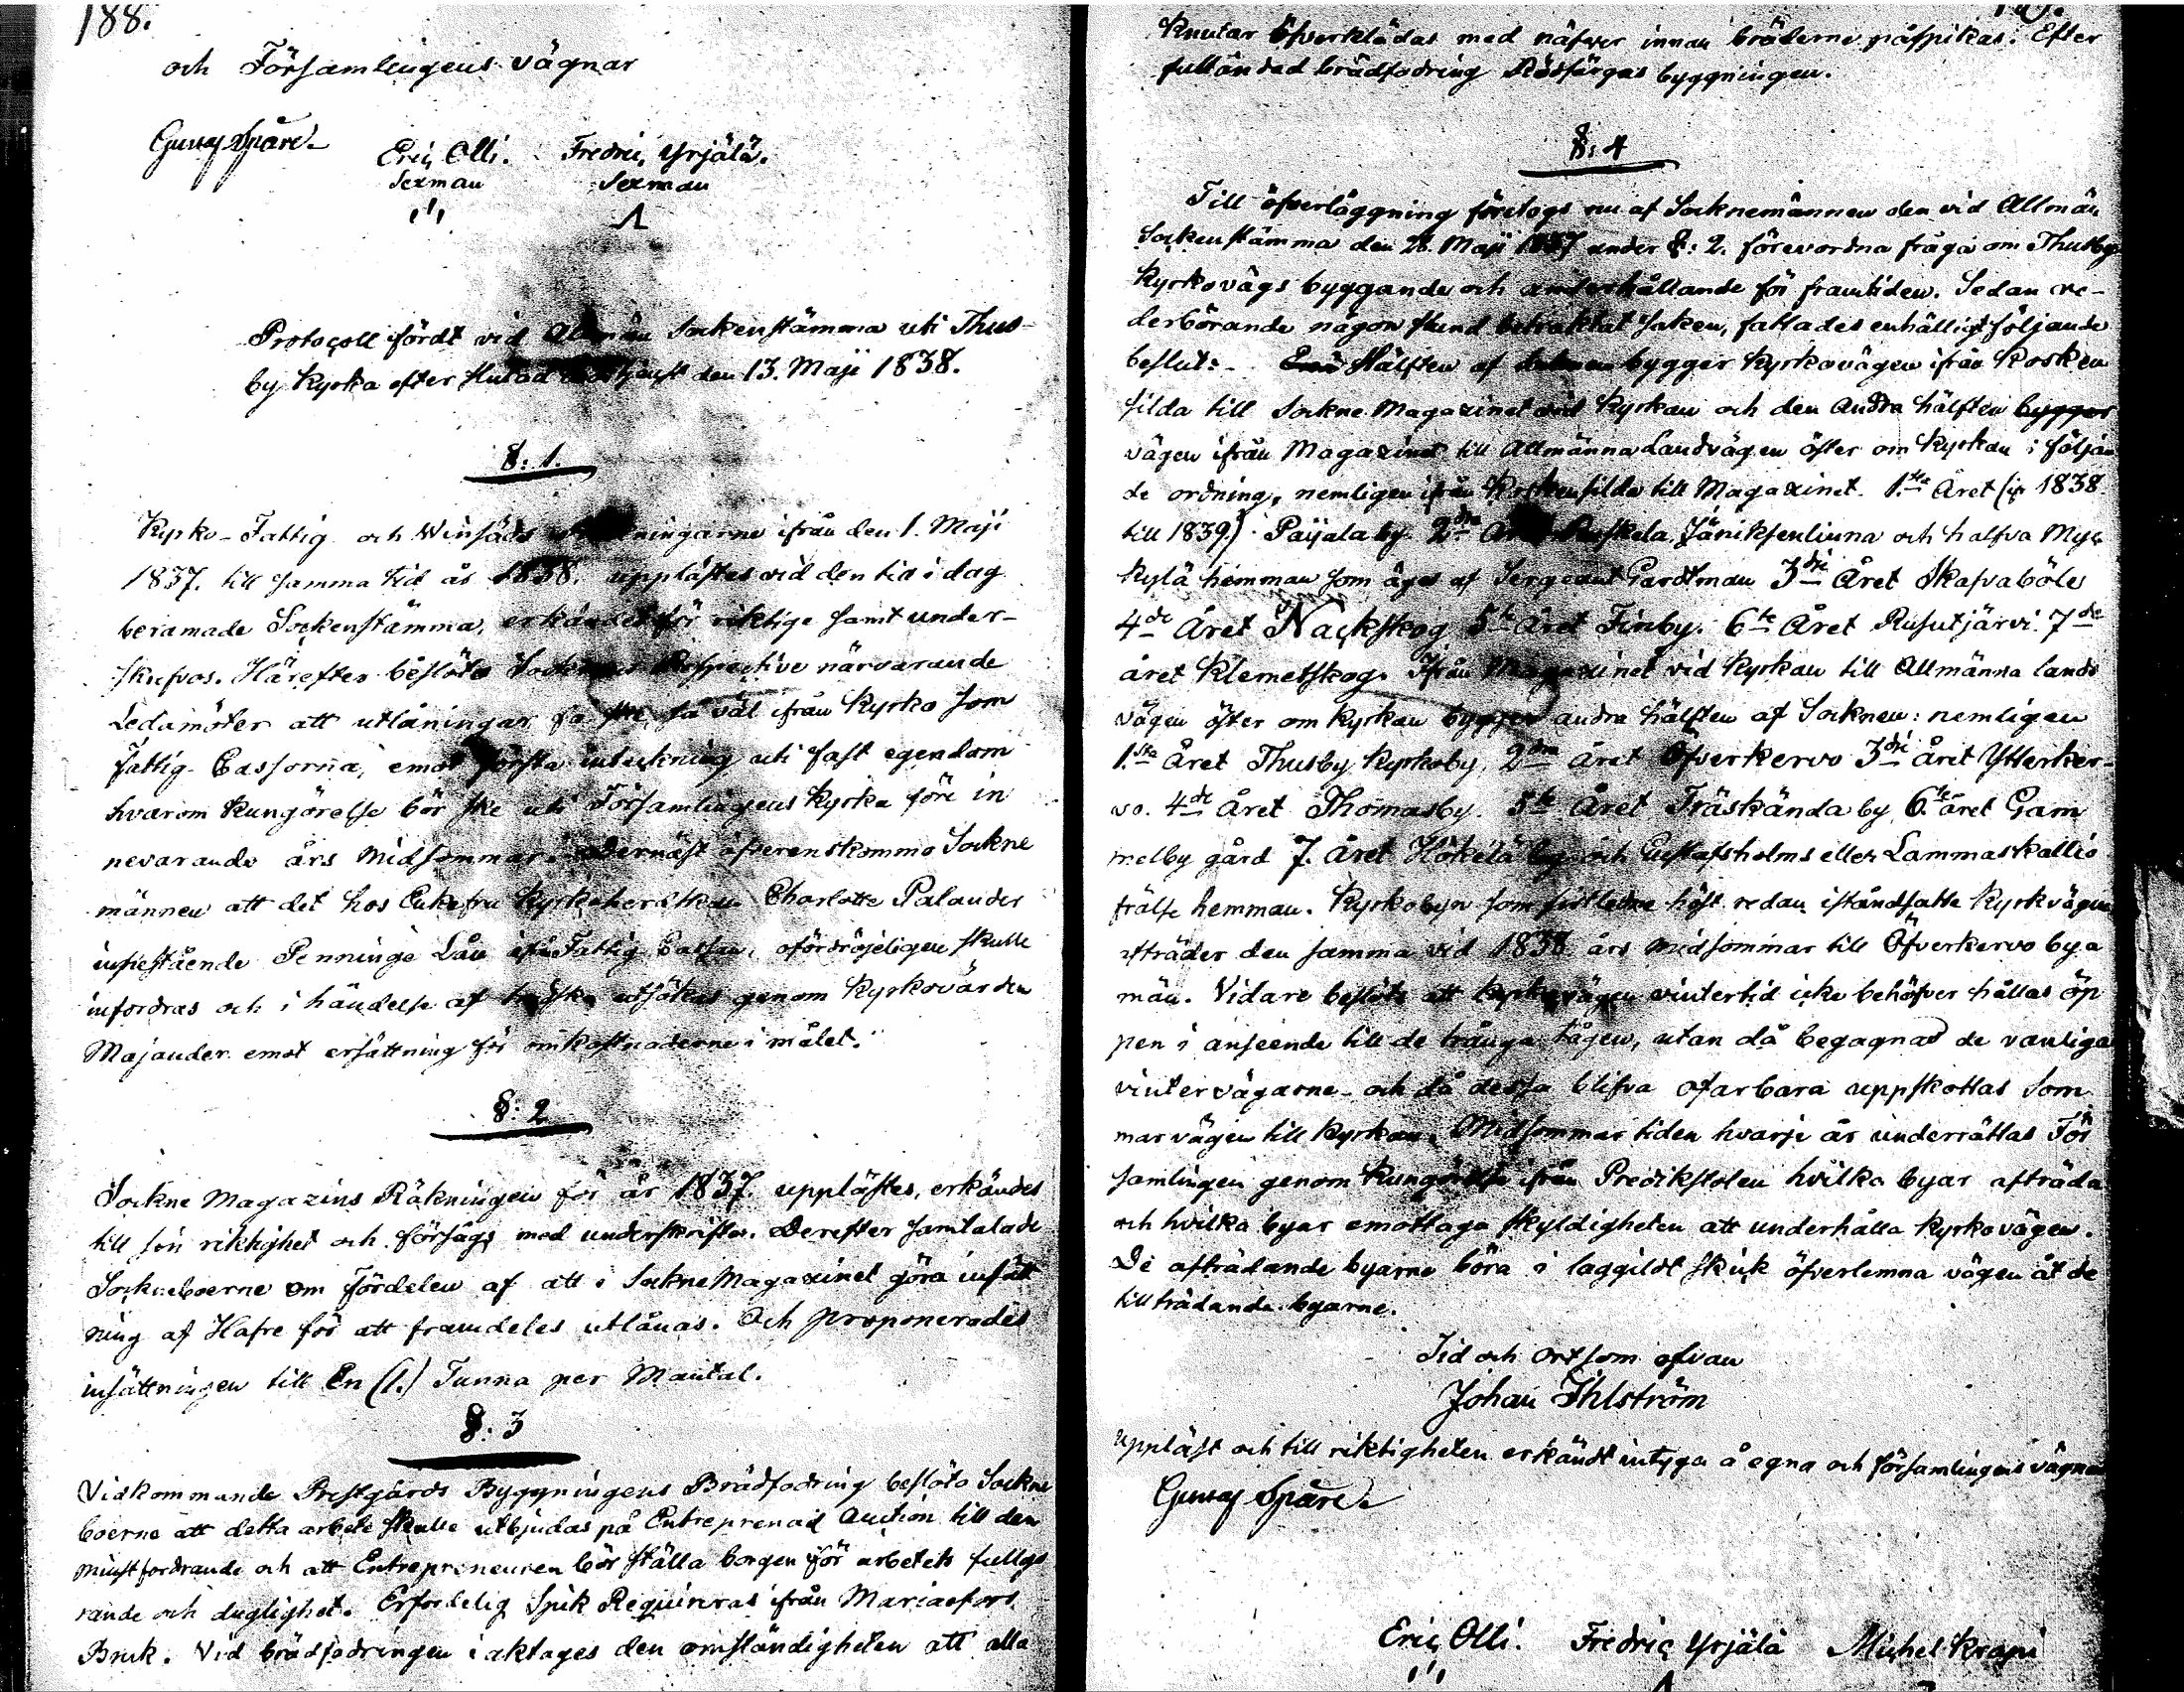 188.
och Församlingens vägnar
Gustaf Spåre.
Eric Olli. Fredric Yrjälä.
Sexman Sexman
Protocoll fördt vid Allmän Sockenstämma uti Thus-
by Kyrka efter slutad Gudstjenst den 13. Maji 1838.
§: 1.
Kyrko- Fattig och Winsäds räkningarne ifrån den 1. Maji
1837. till samma tid år 1838. upplästes vid den tid i dag
beramade Sockenstämma, erkändes för riktige samt under-
skrefvos. Härefter beslöto Socknens Respective närvarande
Ledamöter att utlåningar få ske så väl ifrån Kyrko som
Fattig-Cassorna, emot första inteckning uti fast egendom
hvarom Kungörelse bör ske uti Församlingens Kyrka före in
nevarande års Midsommar. dernäst öfverenskommo Sockne
männen att det hos Enkefru Kyrkoherdskan Charlotte Palander
innestående Penninge Lån ifrån Fattig Cassan, ofördröjeligen skulle
infordras och i händelse af tredska utsökas genom Kyrkovärden
Majander emot ersättning för omkostnaderne i målet.
§: 2
Sockne Magazins Räkningen för år 1837. upplästes, erkändes
till sin riktighet och försågs med underskrifter. Derefter samtalade
Sockneboerne om Fördelen af att i SockneMagazinet göra insätt
ning af Hafre för att framdeles utlånas. Och proponerades
insättningen till En (1.) Tunna per Mantal.
§: 3
Vidkommande Prestgårds Byggningens Brädfodring beslöto Sockne
boerne att detta arbete skulle utbjudas på Entreprenad Auction till den
minstfordrande och att Entrepreneuren bör ställa borgen för arbetets fullgö
rande och duglighet. Erforderlig Spik Requireras ifrån Mariaefors
Bruk. Vid brädfodringen iakttages den omständigheten att alla
Knutar öfverklädas med näfver innan bräderne påspikas. Efter
fulländad brädfodring Rödfärgas byggningen.
§: 4
Till öfverläggning företogs nu af Socknemännen den vid Allmän
Sockenstämma den 28. Maji 1837 under §: 2. förevordna fråga om Thusby
Kyrkovägs byggande och underhållande för framtiden. Sedan ve-
derbörande någon stund betraktat saken, fattades enhälligt följande
beslut:- Hälften af bygger Kyrkovägen ifrån Kosken
silda till Sockne Magazinet vid Kyrkan och den andra hälften bygger
vägen ifrån Magazinet till Allmänna Landvägen öster om Kyrkan i följan
de ordning, nemligen ifrån Koskensilda till Magazinet. 1.sta Året (ifr 1838
till 1839) Paijala by. 2dra Året Ruskela, Jäniksenlinna och halfva Myl
kylä hemman som äges af Sergeant Gardtman 3die Året Skafvaböle
4de Året Nackskog 5te Året Finby. 6te Året Rusutjärvi. 7de
året Klemetskog. Ifrån Magazinet vid Kyrkan till Allmänna lands
vägen öster om Kyrkan bygger andra hälften af Socknen: nemligen
1.sta Året Thusby Kyrkoby, 2dra året Öfverkervo 3die året Ytterker-
vo. 4de Året Thomasby. 5te Året Träskända by 6.te året Gam
melby gård 7. Året Hökelä by och Gustafsholms eller Lammaskallio
frälse hemman. Kyrkobyn som sistledne höst redan iståndsatte Kyrkvägen
afträder den samma vid 1838 års Midsommar till Öfverkervo bya
män. Vidare beslöts att Kyrkovägen vintertid icke behöfver hållas öp
pen i anseende till de trånga tågen, utan då begagnas de vanliga
vintervägarne- och då dessa blifva ofarbara uppskottas Som
marvägen till Kyrkan. Midsommar tiden hvarje år underrättas För
samlingen genom Kungörelse ifrån Predikstolen hvilka byar afträda
och hvilka byar emottaga skyldigheten att underhålla Kyrkovägen.
De afträdande byarne böra i laggildt skick öfverlemna vägen åt de
tillträdande byarne.
Tid och Ort som ofvan
Johan Ihlström
Uppläst och till riktigheten erkändt intyga å egna och församlingens vägnar
Gustaf Spåre.
Eric Olli. Fredric Yrjälä Michel Krapi